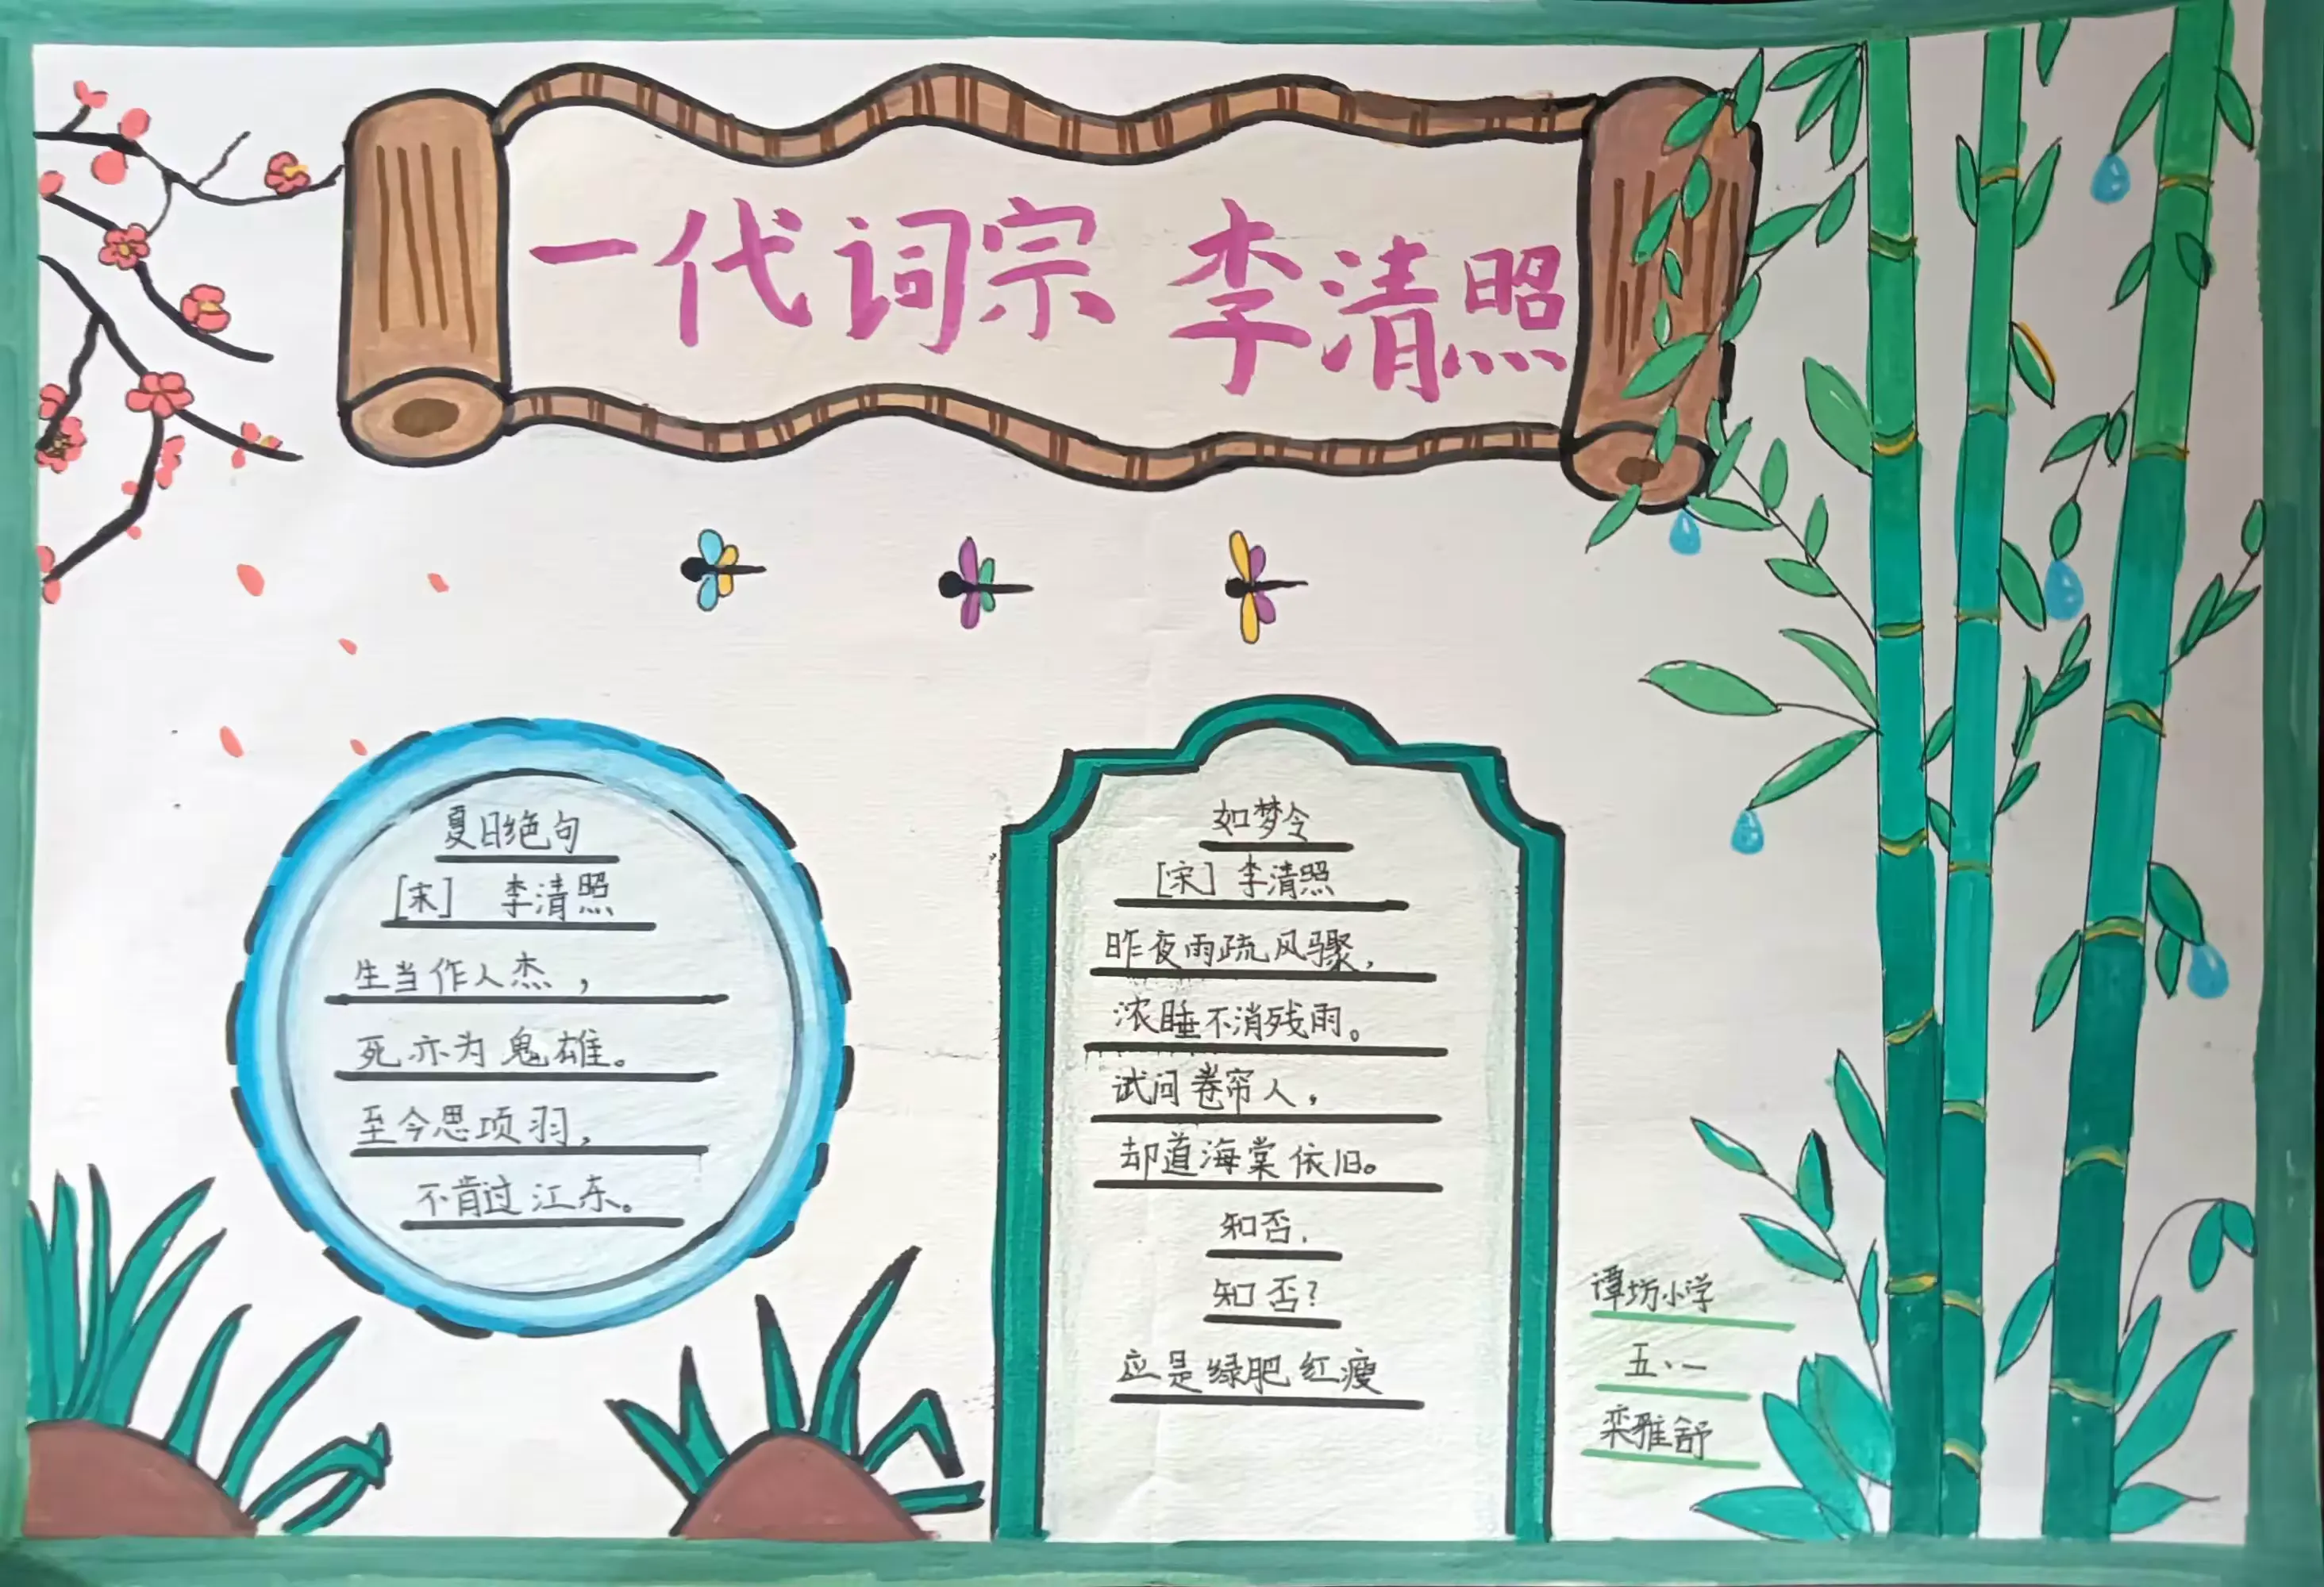 一代词宗 李清照
夏日绝句
[宋] 李清照
生当作人杰，
死亦为鬼雄。
至今思项羽，
不肯过江东。
如梦令
[宋] 李清照
昨夜雨疏风骤，
浓睡不消残雨。
试问卷帘人，
却道海棠依旧。
知否，
知否？
应是绿肥红瘦
谭坊小学
五、一
栾雅舒